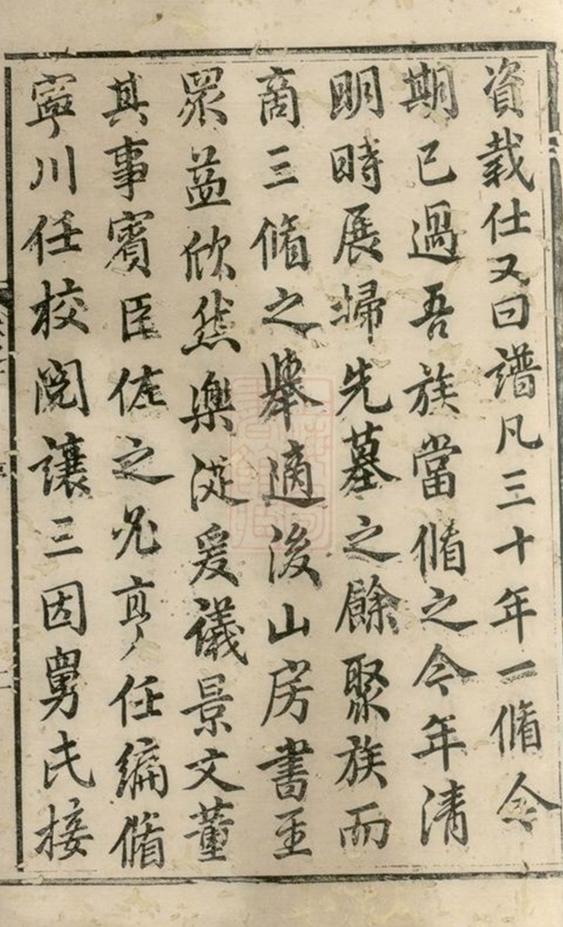 資裁仕又曰譜凡三十年一脩令
期已過吾族當脩之今年清
明時展埽先墓之餘聚族而
商三脩之舉適後山房書至
眾益欣然樂從爰議景文董
其事賓臣佐之兆亨任編脩
寧川任校閱讓三因舅氏接